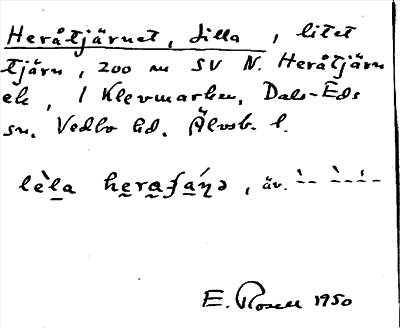 Heråtjärnet, Lilla, litet
tjärn, 200 m SV N. Heråtjärn
ek, i Klevmarken, Dals-Eds
sn. Vedbo hd. Älvsb. l.
E. Rosell 1950